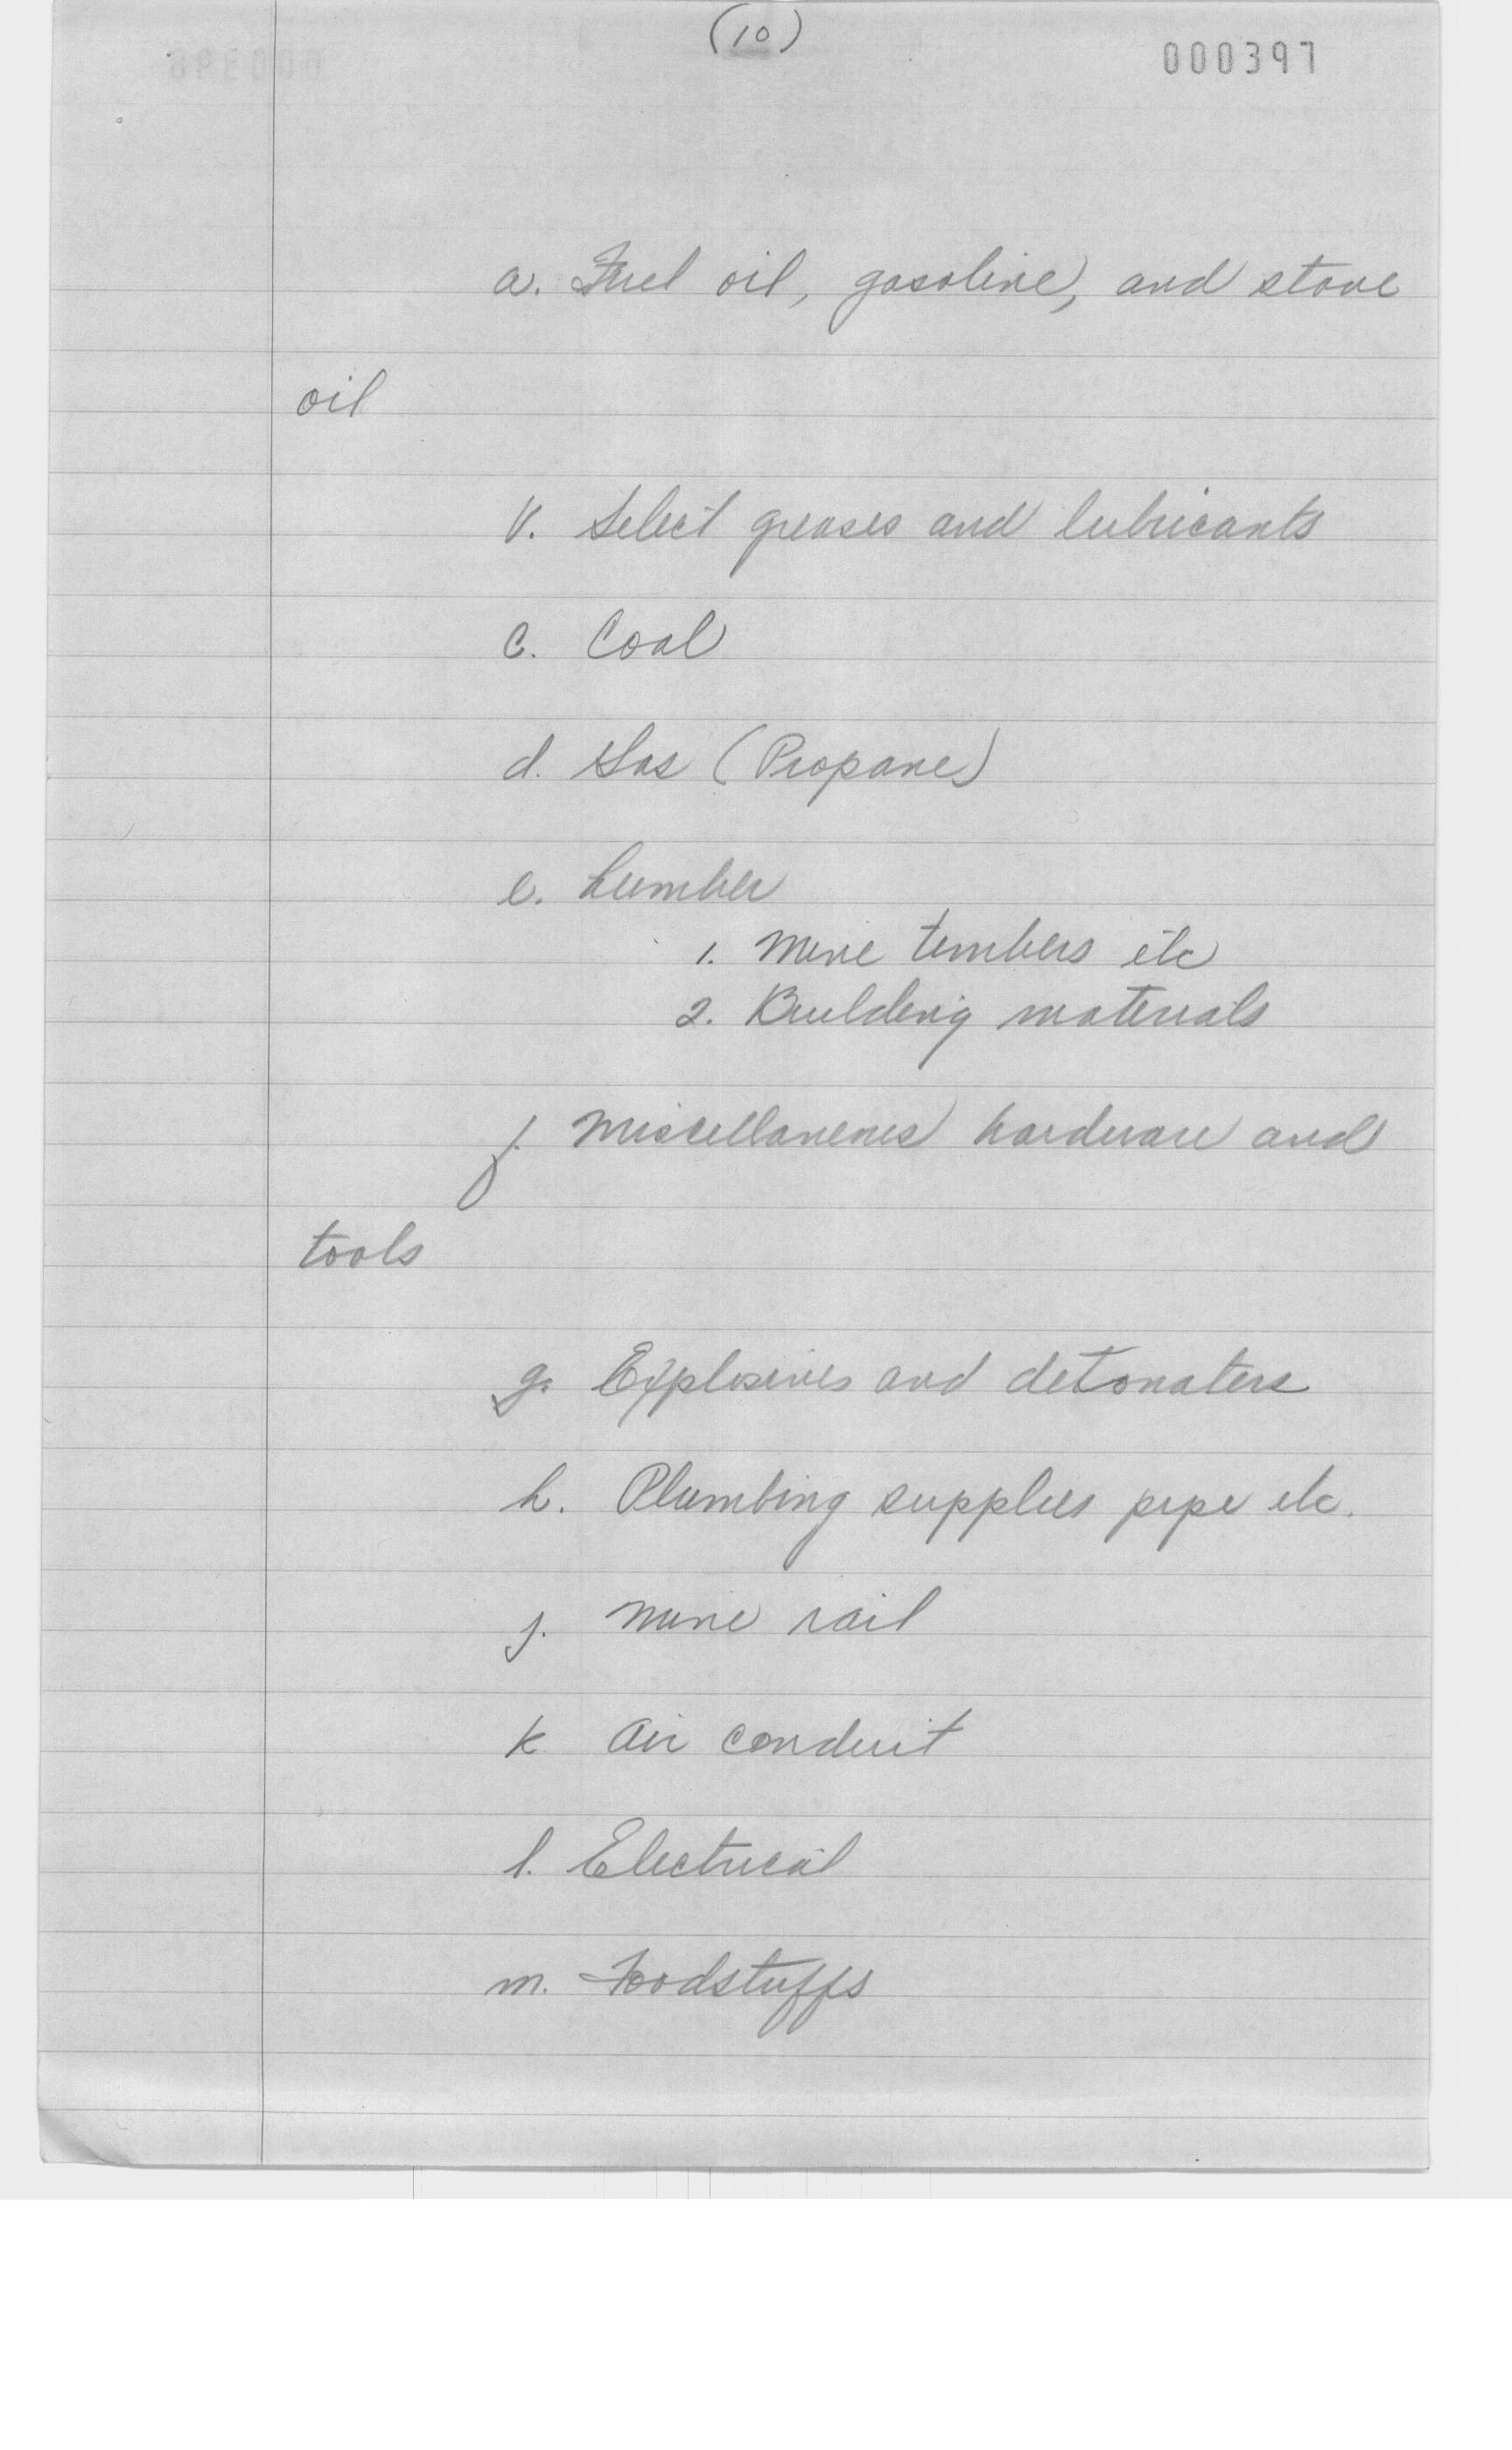 (10)
000397
a. Fuel oil, gasoline, and stove
oil
b. Select greases and lubricants
c. Coal
d. Gas (Propane)
e. Lumber
1. Mine timbers etc
2. Building materials
f. Miscellaneous hardware and
tools
g. Explosives and detonaters
h. Plumbing supplies pipe etc.
j. Mine rail
k Air conduit
l. Electrical
m. Foodstuffs